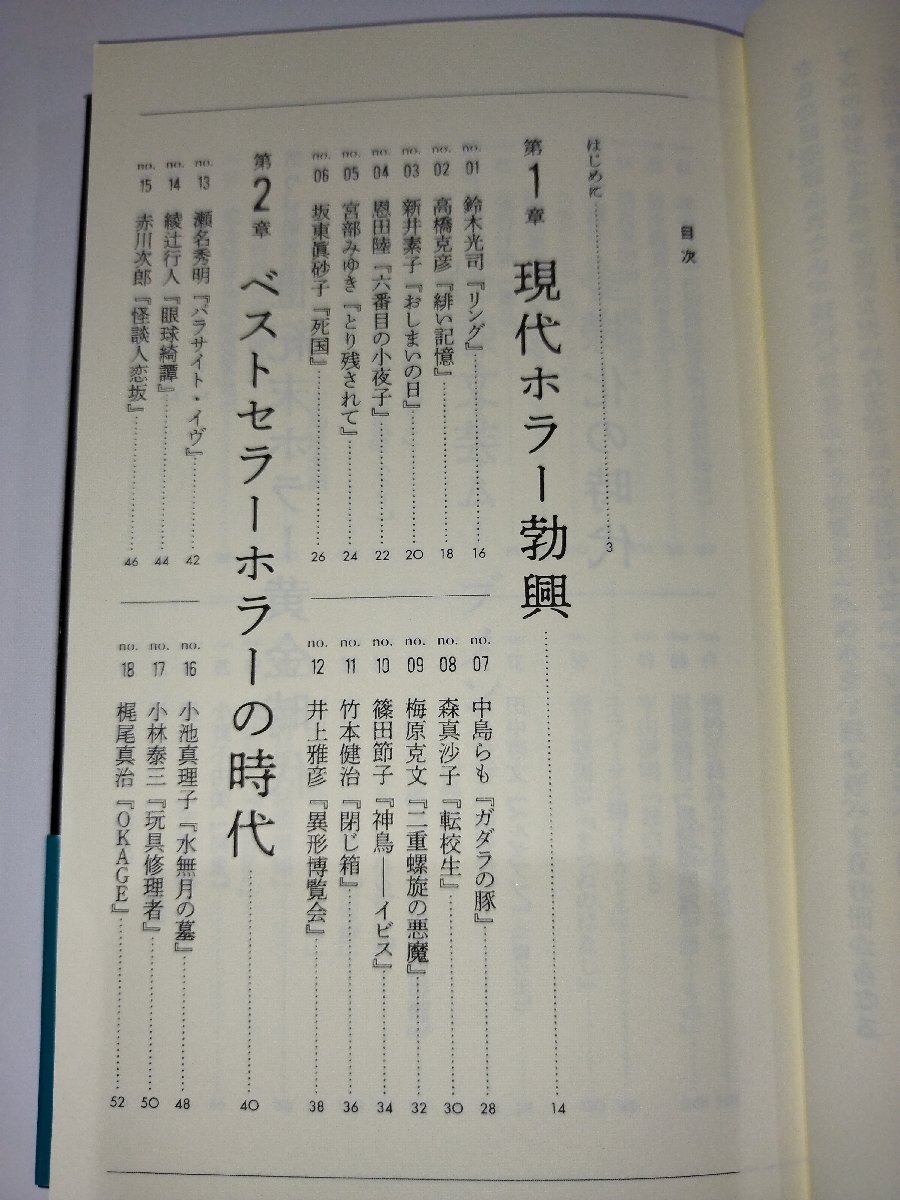 目次
はじめに 3
第1章 現代ホラー勃興 14
no.01 鈴木光司『リング』 16
no.02 高橋克彦『緋い記憶』 18
no.03 新井素子『おしまいの日』 20
no.04 恩田陸『六番目の小夜子』 22
no.05 宮部みゆき『とり残されて』 24
no.06 坂東眞砂子『死国』 26
no.07 中島らも『ガダラの豚』 28
no.08 森真沙子『転校生』 30
no.09 梅原克文『二重螺旋の悪魔』 32
no.10 篠田節子『神鳥――イビス』 34
no.11 竹本健治『閉じ箱』 36
no.12 井上雅彦『異形博覧会』 38
第2章 ベストセラーホラーの時代 40
no.13 瀬名秀明『パラサイト・イヴ』 42
no.14 綾辻行人『眼球綺譚』 44
no.15 赤川次郎『怪談人恋坂』 46
no.16 小池真理子『水無月の墓』 48
no.17 小林泰三『玩具修理者』 50
no.18 梶尾真治『OKAGE』 52